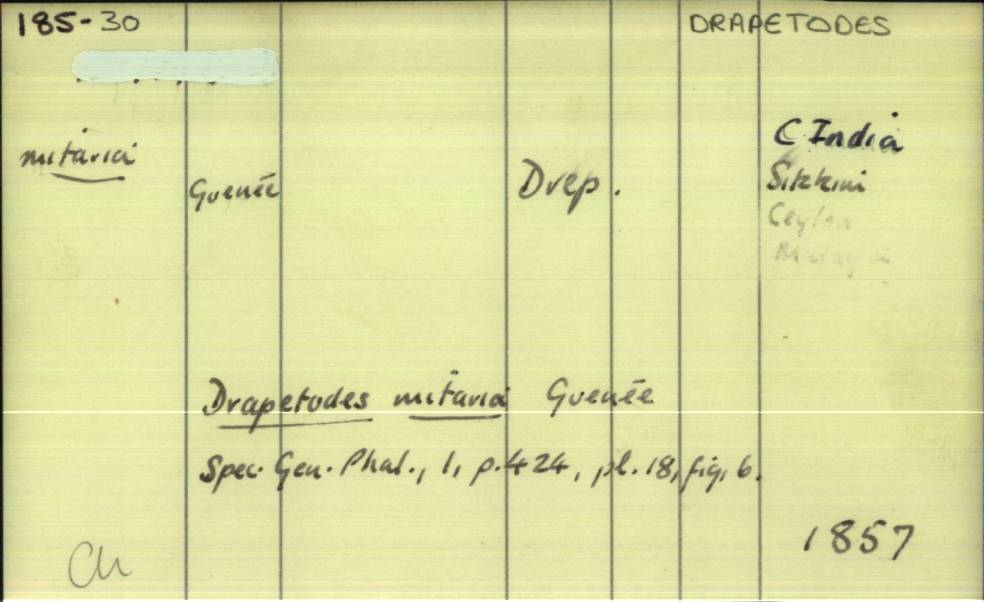 185-30
DRAPETODES
mitaria
Guenée
Drep.
C India
Sikkim
Ceylon
Malaya
Drapetodes mitaria Guenée
Spec. Gen. Phal., 1, p. 424, pl. 18, fig. 6.
1857